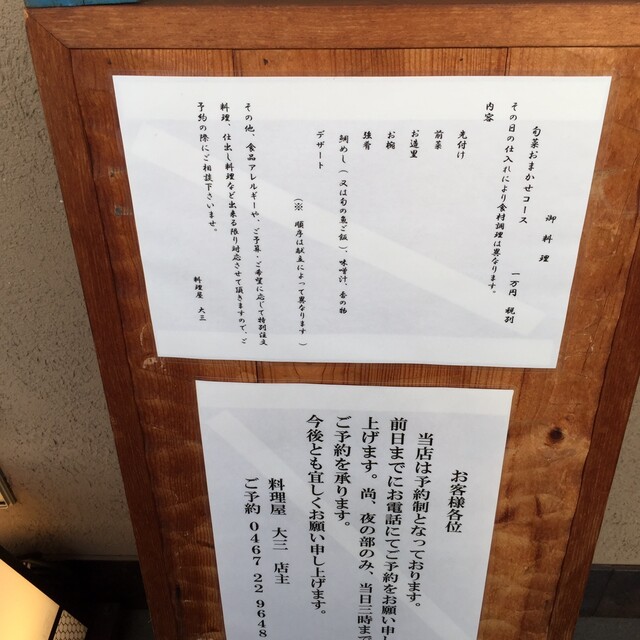 御料理
旬菜おまかせコース　一万円　税別
その日の仕入れにより食材調理は異なります。
内容
先付け
前菜
お造里
お椀
強肴
鯛めし（又は旬の魚ご飯）味噌汁、香の物
デザート
（※　順序は献立によって異なります）
その他、食品アレルギーや、ご予算・ご希望に応じて特別注文
料理、仕出し料理など出来る限り対応させて頂きますので、ご
予約の際にご相談下さいませ。
料理屋　大三
お客様各位
当店は予約制となっております。
前日までにお電話にてご予約をお願い申し
上げます。尚、夜の部のみ、当日三時まで
ご予約を承ります。
今後とも宜しくお願い申し上げます。
料理屋　大三　店主
ご予約 0467 22 9648